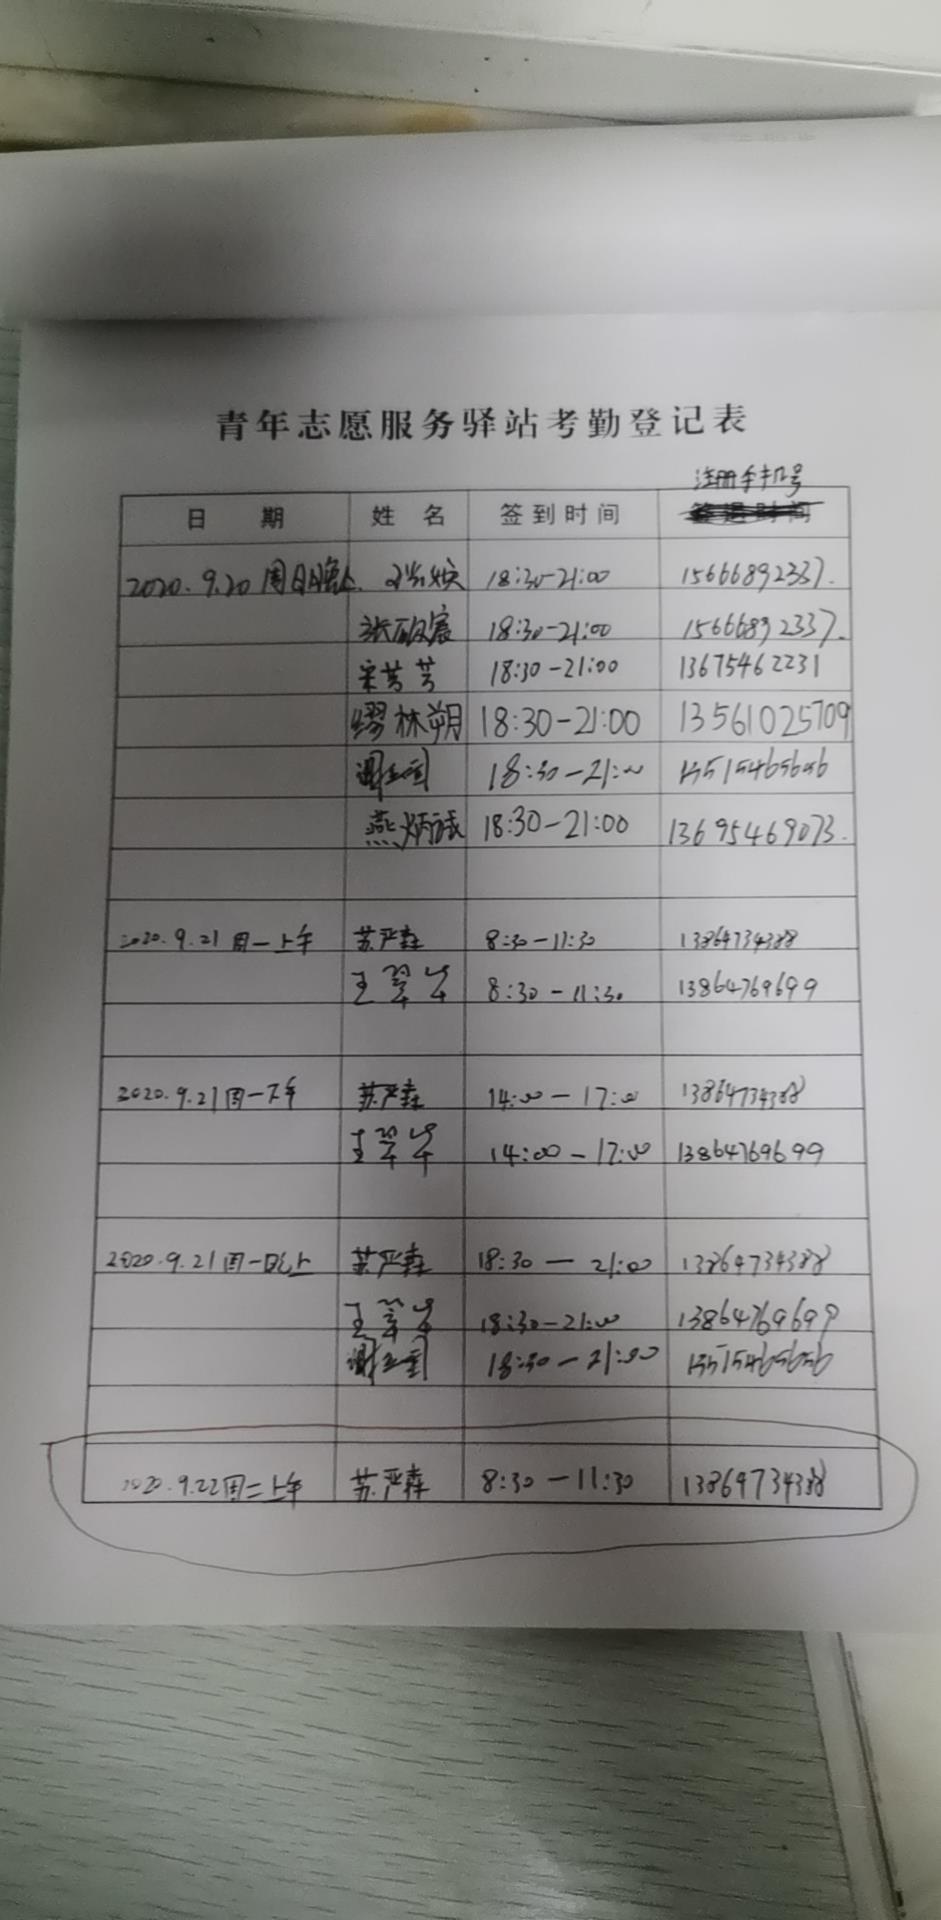 青年志愿服务驿站考勤登记表
注册手机号
日 期 姓 名 签到时间 签退时间
2020.9.20 周日晚上 18:30-21:00 15666892337.
18:30-21:00 15666892337.
宋芳芳 18:30-21:00 13675462231
缪林朔 18:30-21:00 13561025709
18:30-21:00 15515465656
燕炳诚 18:30-21:00 13695469073.
2020.9.21 周一上午 苏严森 8:30-11:30 13864734388
王翠华 8:30-11:30 13864769699
2020.9.21周一下午 苏严森 14:00-17:00 13864734388
王翠华 14:00-17:00 13864769699
2020.9.21周一晚上 苏严森 18:30-21:00 13864734388
王翠华 18:30-21:00 13864769699
18:30-21:00 15515465656
2020.9.22周二上午 苏严森 8:30-11:30 13864734388